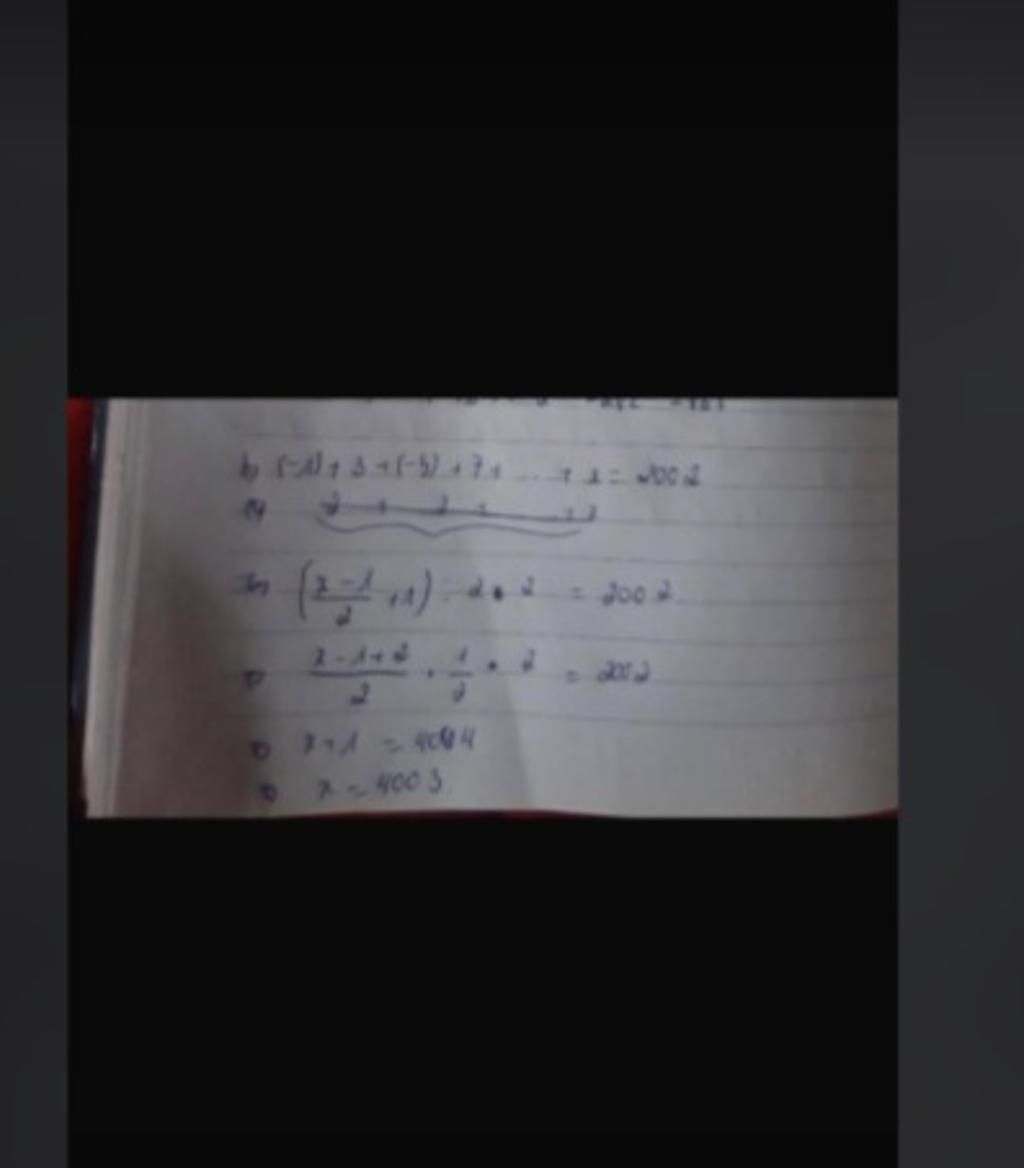 b) (-1) + 3 + (-5) + 7 + ... + x = 2002
2 + 2 + ... + 2
(x - 1 / 2 + 1) : 2 • 2 = 2002
x - 1 + 2 / 2 • 1 / 2 • 2 = 2002
x + 1 = 4004
x = 4003.